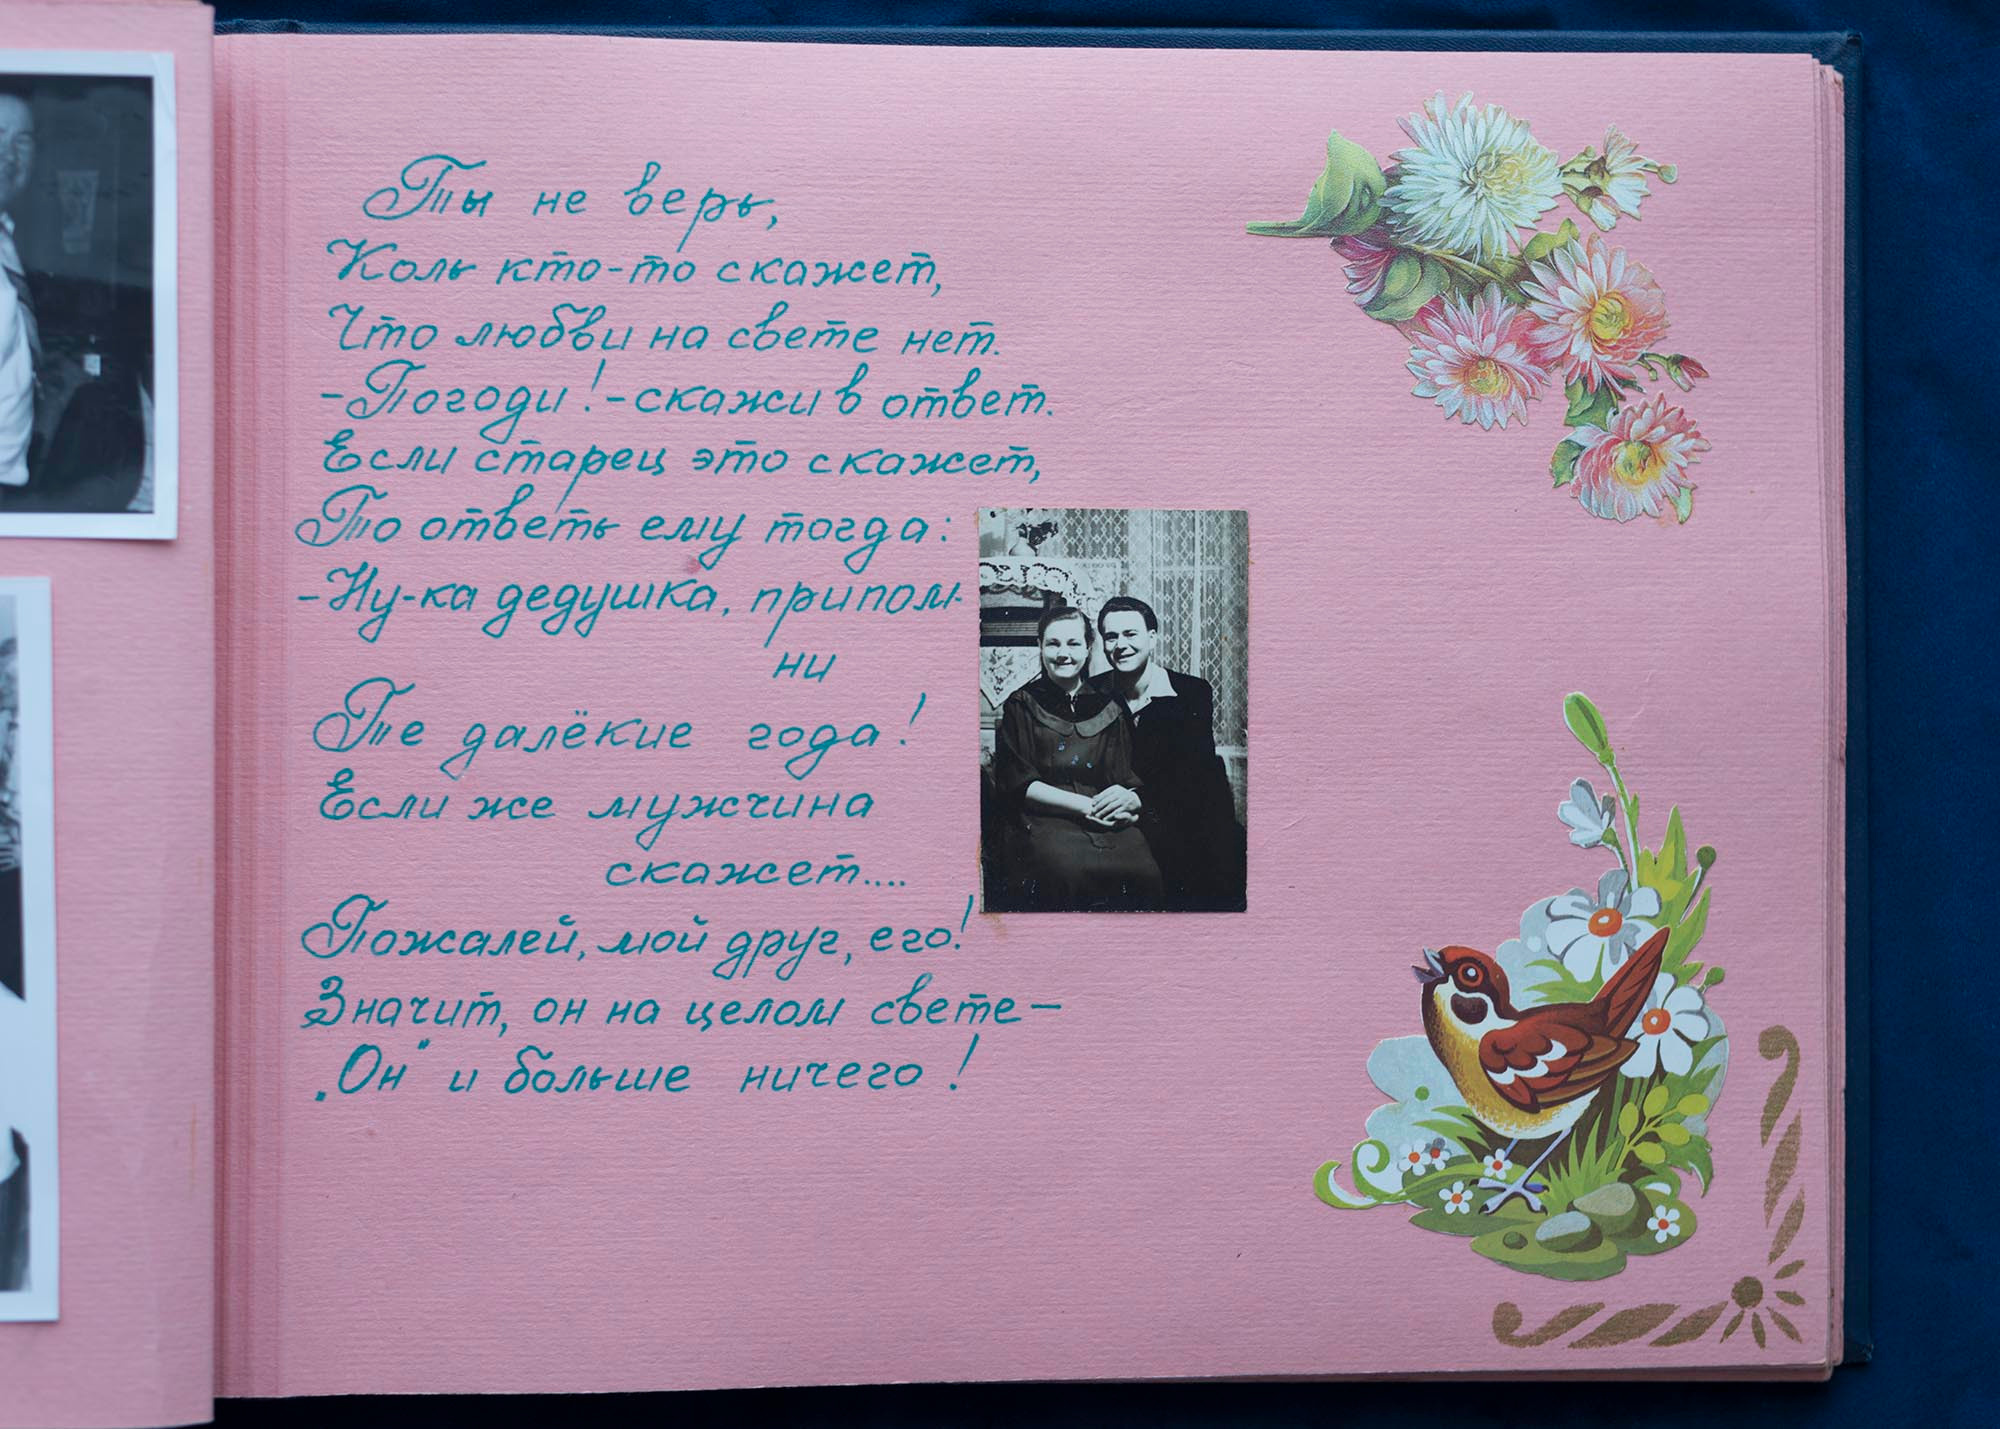 Ты не верь,
Коль кто-то скажет,
Что любви на свете нет.
-Погоди!-скажи в ответ.
Если старец это скажет,
То ответь ему тогда:
-Ну-ка дедушка, припом-
ни
Те далёкие года!
Если же мужчина
скажет....
Пожалей, мой друг, его!
Значит, он на целом свете-
„Он" и больше ничего!